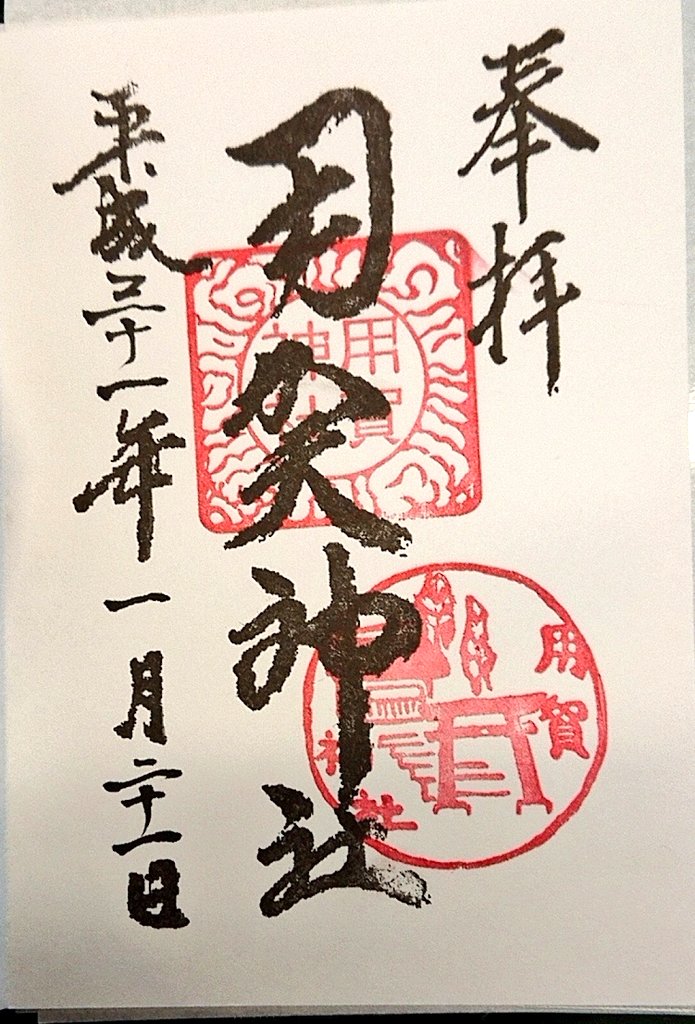 奉拝
用賀神社
平成三十一年一月二十一日
用賀神社
用賀神社